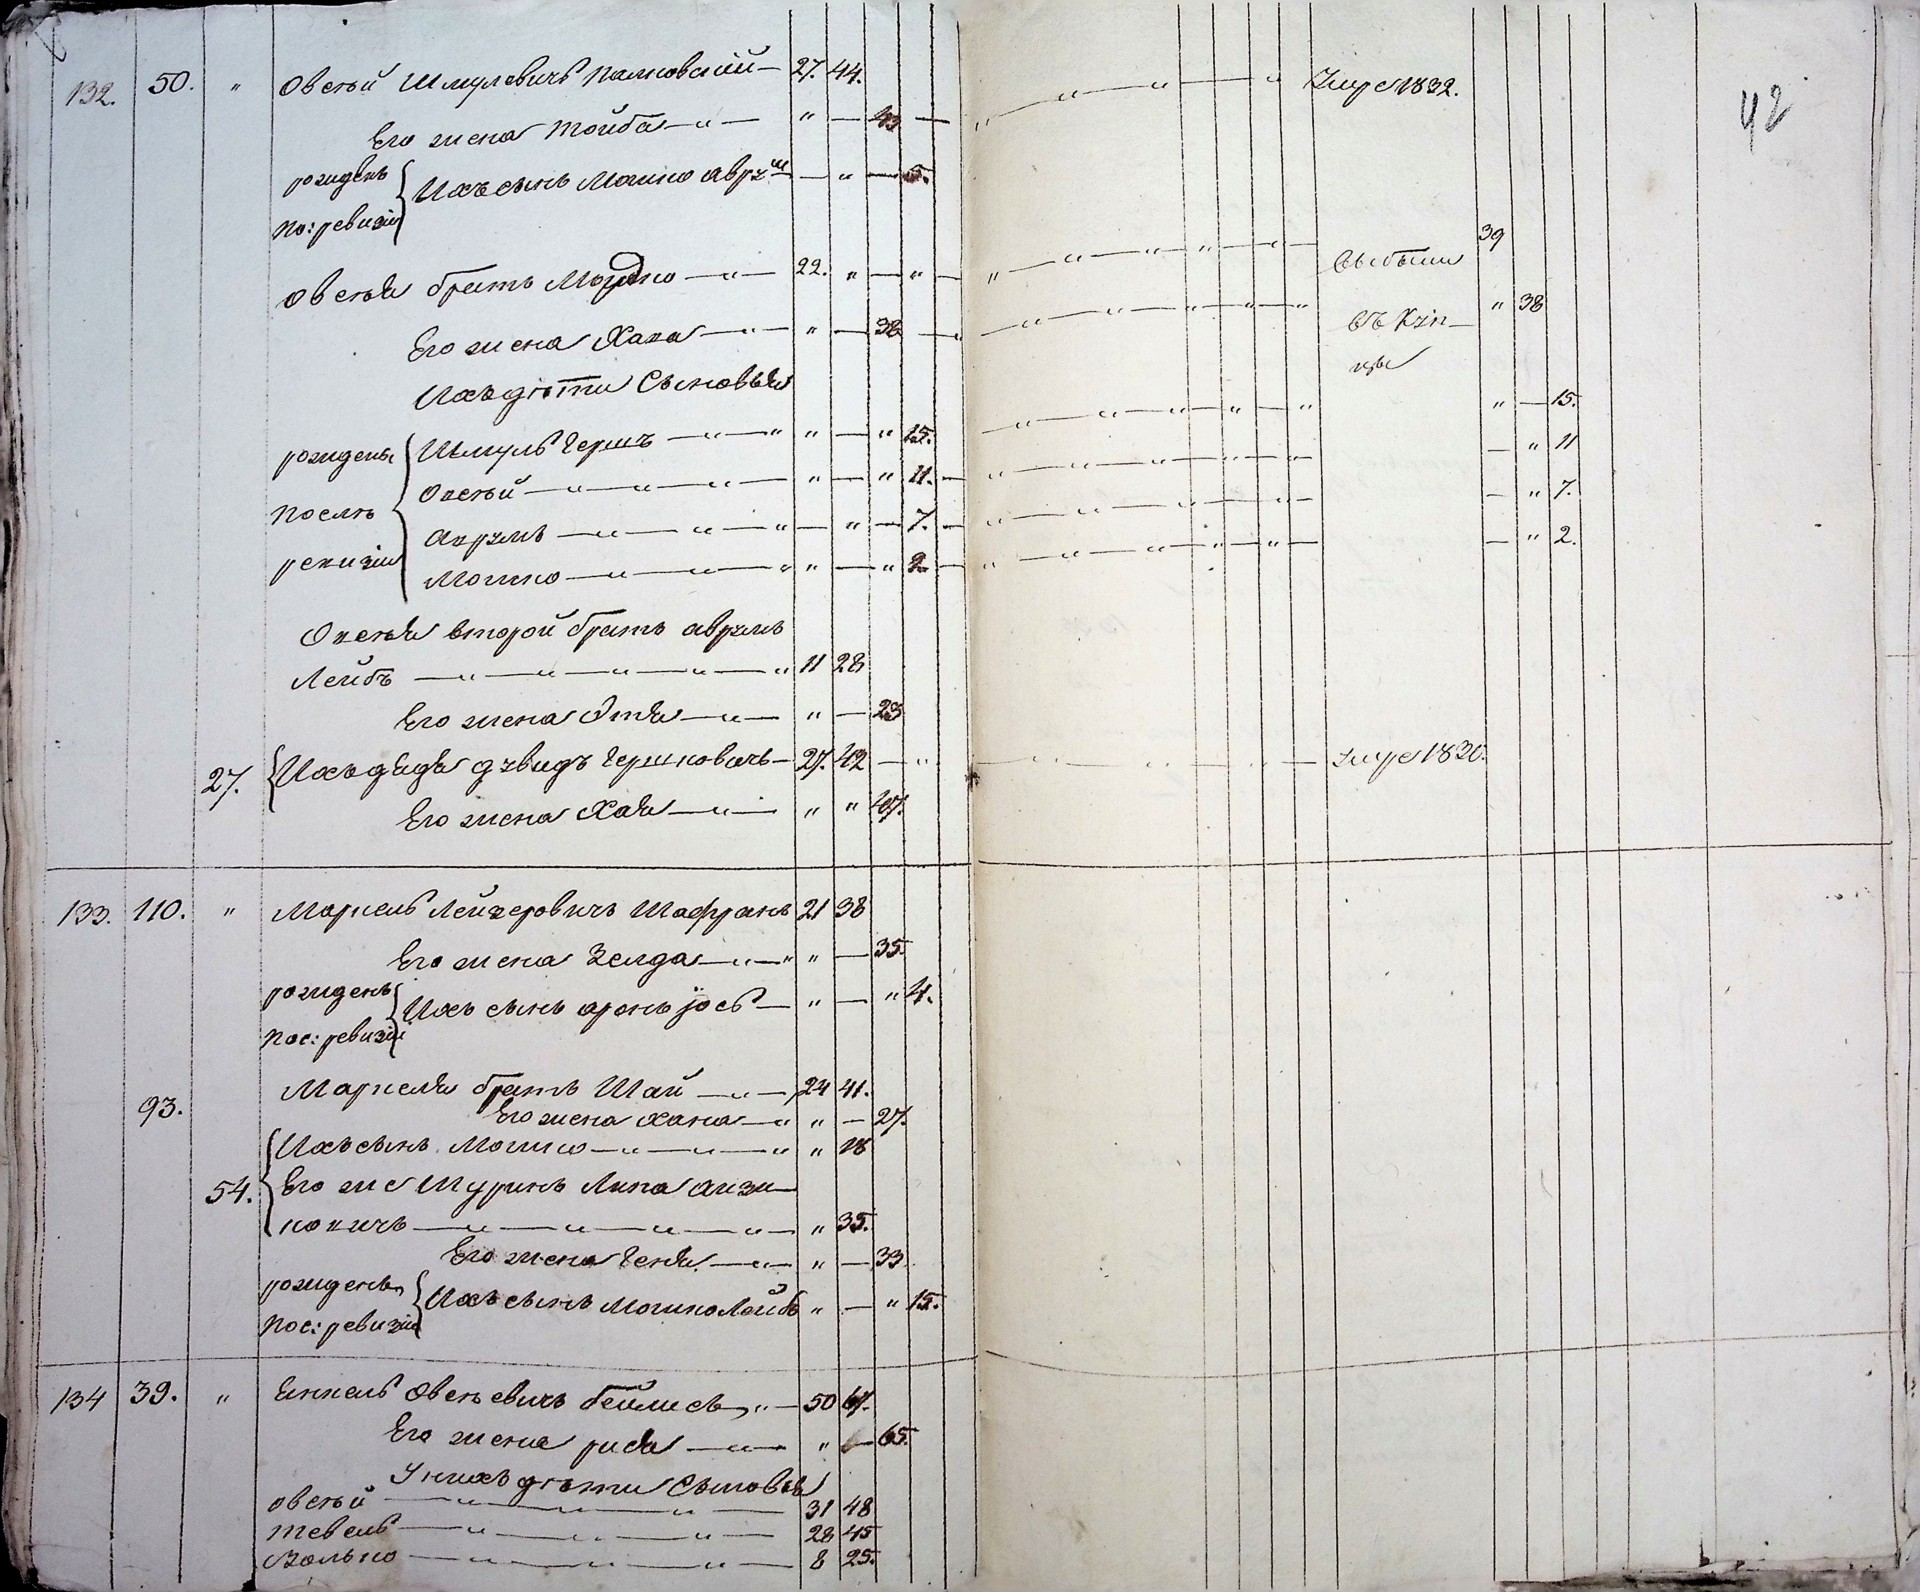 42
132. 50. " Овсѣй Шмулевичъ Палковскій 27. 44. Умре 1832.
Его жена Тойба " 43
рожденъ Ихъ сынъ Мошко Аврум " 5.
по: ревизіи
Овсѣя братъ Мордко 22. " " выбыли 39
Его жена Хана " 38 въ куп " 38
цы
Ихъ дѣти Сыновья
рожденъ Шмуль Гершъ " " 15. " 15.
послѣ Овсѣй " " 11. " 11
Аврумъ " 7. " 7.
ревизіи Мошко " " 2. " 2.
Овсѣя второй братъ Аврумъ
Лейбъ 11 28
Его жена Этя " 23
27. Ихъ дядя Дувидъ Гершковичъ 27. 42 " Умре 1830.
Его жена Хая " " 47.
133. 110. " Маркель Лейзеровичъ Шафранъ 21 38
Его жена Зелда " 35.
рожденъ Ихъ сынъ Аронъ Іось " " 4.
пос: ревизіи
93. Маркеля братъ Шай 24 41.
Его жена Хана " 27.
Ихъ сынъ Мошко " 18
54. Его же Шуринъ Липа Айзи
ковичъ " 35.
Его жена Геня " 33
рожденъ Ихъ сынъ Мошко Лейбъ " " 15.
пос: ревизіи
134 39. " Янкель Овсѣевичъ Бейлисъ " 50 67.
Его жена Рися " 65.
У нихъ дѣти Сыновья
Овсѣй 31 48
Тевель 28 45
Волько 8 25.